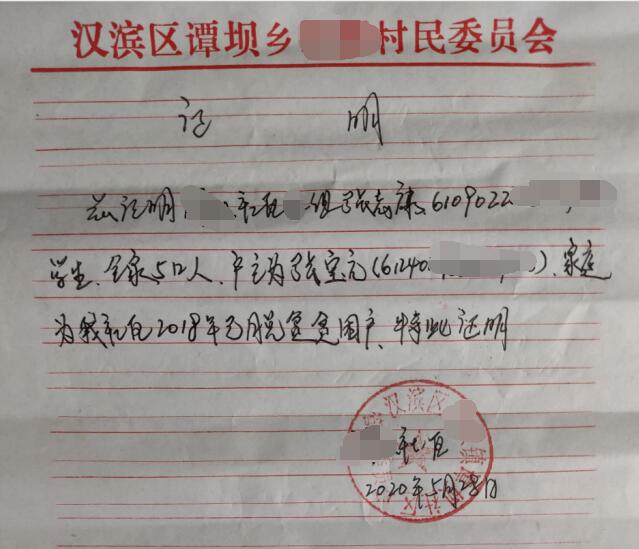 汉滨区谭坝乡 村民委员会
证 明
兹证明 社区 组张志康、6109022
学生、全家5口人、户主为张宝元(612401 )、家庭
为我社区2018年 月脱贫贫困户、特此证明
汉滨区 镇
社区
2020年5月28日